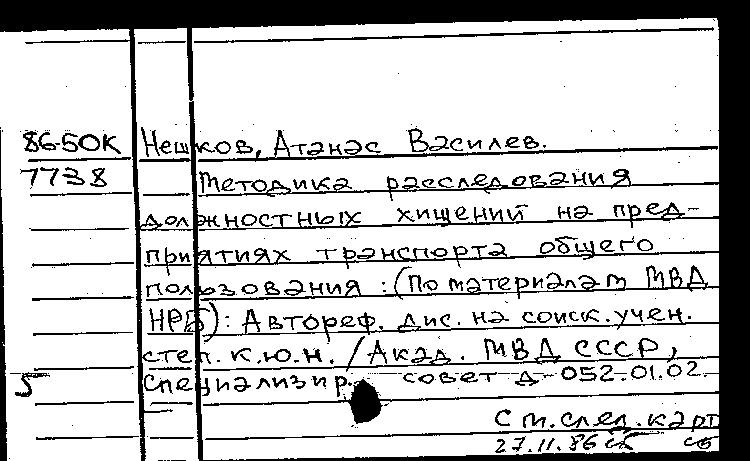 86-50К Нешков, Атанас Василев.
7738 Методика расследования
должностных хищений на пред-
приятиях транспорта общего
пользования: (По материалам МВД
НРБ): Автореф. дис. на соиск. учен.
степ. к.ю.н. / Акад. МВД СССР,
5 Специализир. совет Д-052.01.02.
См. след. карт
27.11.86